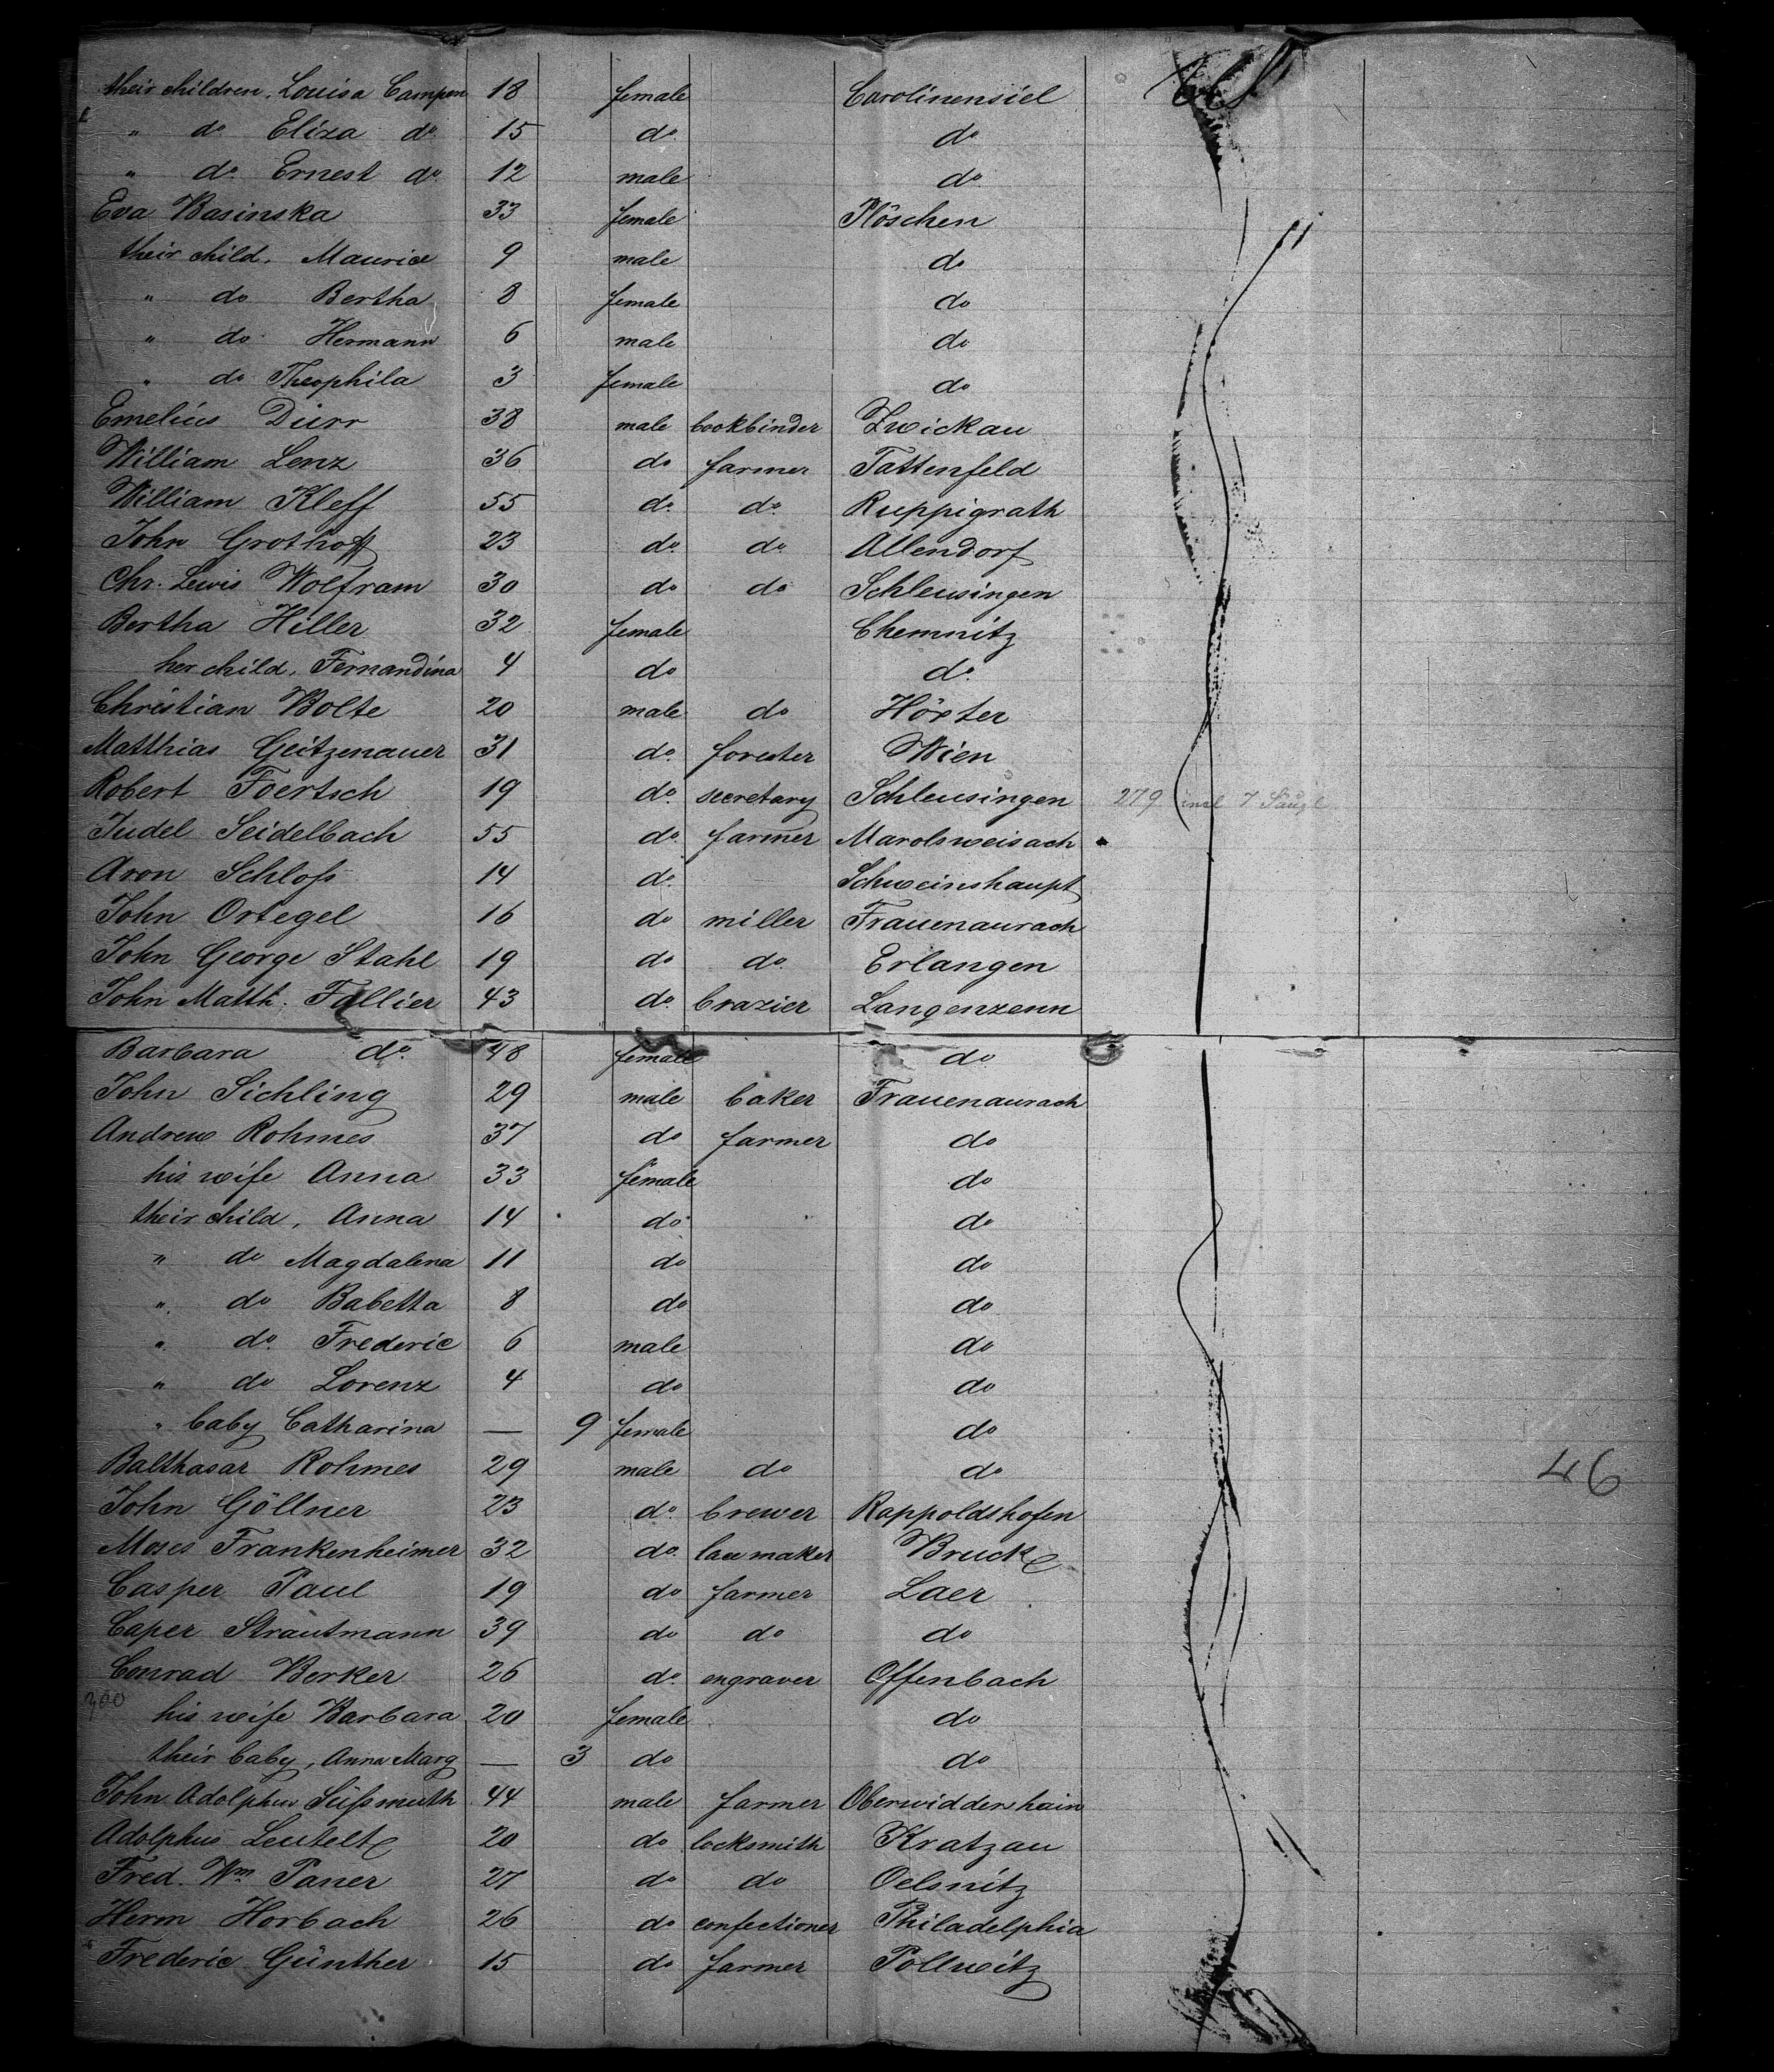 their children, Louisa Campen 18 female Carolinensiel
" do Eliza do 15 do do
" do Ernest do 12 male do
Eva Basinska 33 female Plöschen
their child, Maurice 9 male do
" do Bertha 8 female do
" do Hermann 6 male do
" do Theophila 3 female do
Emelius Dürr 38 male bookbinder Zwickau
William Lenz 36 do farmer Tattenfeld
William Kleff 55 do do Ruppigrath
John Grothoff 23 do do Allendorf
Chr. Lewis Wolfram 30 do do Schleusingen
Bertha Hiller 32 female Chemnitz
her child, Fernandina 4 do do
Christian Bolte 20 male do Höxter
Matthias Geitzenauer 31 do forester Wien
Robert Foertsch 19 do secretary Schleusingen 279 incl 7 Säugl
Judel Seidelbach 55 do farmer Marolsweisach
Aron Schloß 14 do Schweinshaupt
John Ortegel 16 do miller Frauenaurach
John George Stahl 19 do do Erlangen
John Matth. Fallier 43 do brazier Langenzenn
Barbara do 48 female do
John Sichling 29 male baker Frauenaurach
Andrew Rohmes 37 do farmer do
his wife Anna 33 female do
their child, Anna 14 do do
" do Magdalena 11 do do
" do Babetta 8 do do
" do Frederic 6 male do
" do Lorenz 4 do do
" baby Catharina — 9 female do
Balthasar Rohmes 29 male do do
46
John Göllner 23 do brewer Roppoldshofen
Moses Frankenheimer 32 do lace maker Bruck
Casper Paul 19 do farmer Laer
Caper Strautmann 39 do do do
Conrad Berker 26 do engraver Offenbach
300 his wife Barbara 20 female do
their baby, Anna Marg — 3 do do
John Adolphus Süßmuth 44 male farmer Oberwiddershain
Adolphus Leutelt 20 do locksmith Kratzau
Fred. Wm Paner 27 do do Oelsnitz
Herm Horbach 26 do confectioner Philadelphia
Frederic Günther 15 do farmer Pollwitz